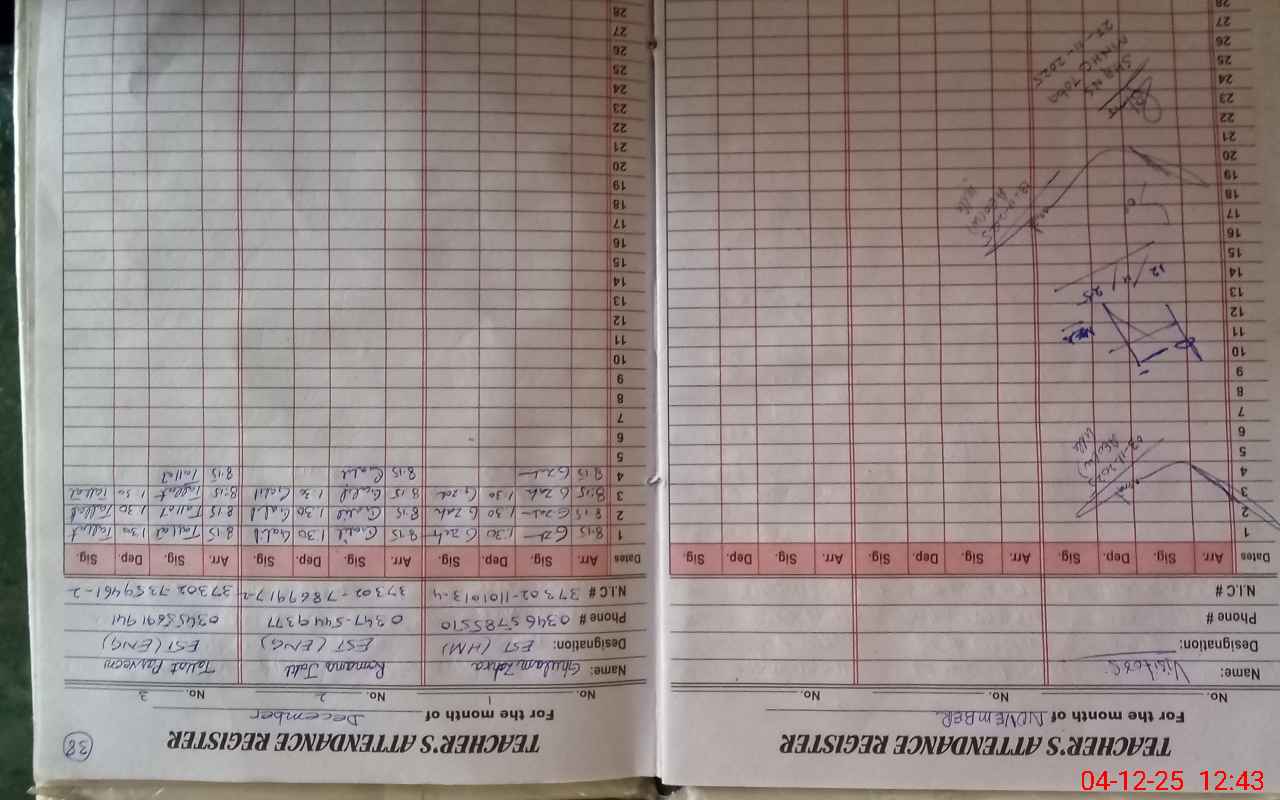 TEACHER'S ATTENDANCE REGISTER
For the month of NOVEMBER
No. No. No.
Name: Visitors
Designation:
Phone #
N.I.C #
Dates Arr. Sig. Dep. Sig. Arr. Sig. Dep. Sig. Arr. Sig. Dep. Sig.
1
2
3
4 03-11-2025
5
6
7
8
9
10
11
12
13
14 12/11/25
15
16
17
18
19
20
21
22
23
24
25
26
27 27-11-2025
28
38
TEACHER'S ATTENDANCE REGISTER
For the month of December
No. 1 No. 2 No. 3
Name: Ghulam Zahra Romana Jalil Tallat Parveen
Designation: EST (HM) EST (ENG) EST (ENG)
Phone # 03465785510 0347-5449377 03455691941
N.I.C # 37302-1101013-4 37302-7867917-2 37302-7359461-2
Dates Arr. Sig. Dep. Sig. Arr. Sig. Dep. Sig. Arr. Sig. Dep. Sig.
1 8:15 1:30 8:15 1:30 8:15 Tallat 1:30 Tallat
2 8:15 1:30 8:15 1:30 8:15 Tallat 1:30 Tallat
3 8:15 1:30 8:15 1:30 8:15 Tallat 1:30 Tallat
4 8:15 8:15 8:15 Tallat
5
6
7
8
9
10
11
12
13
14
15
16
17
18
19
20
21
22
23
24
25
26
27
28
04-12-25 12:43